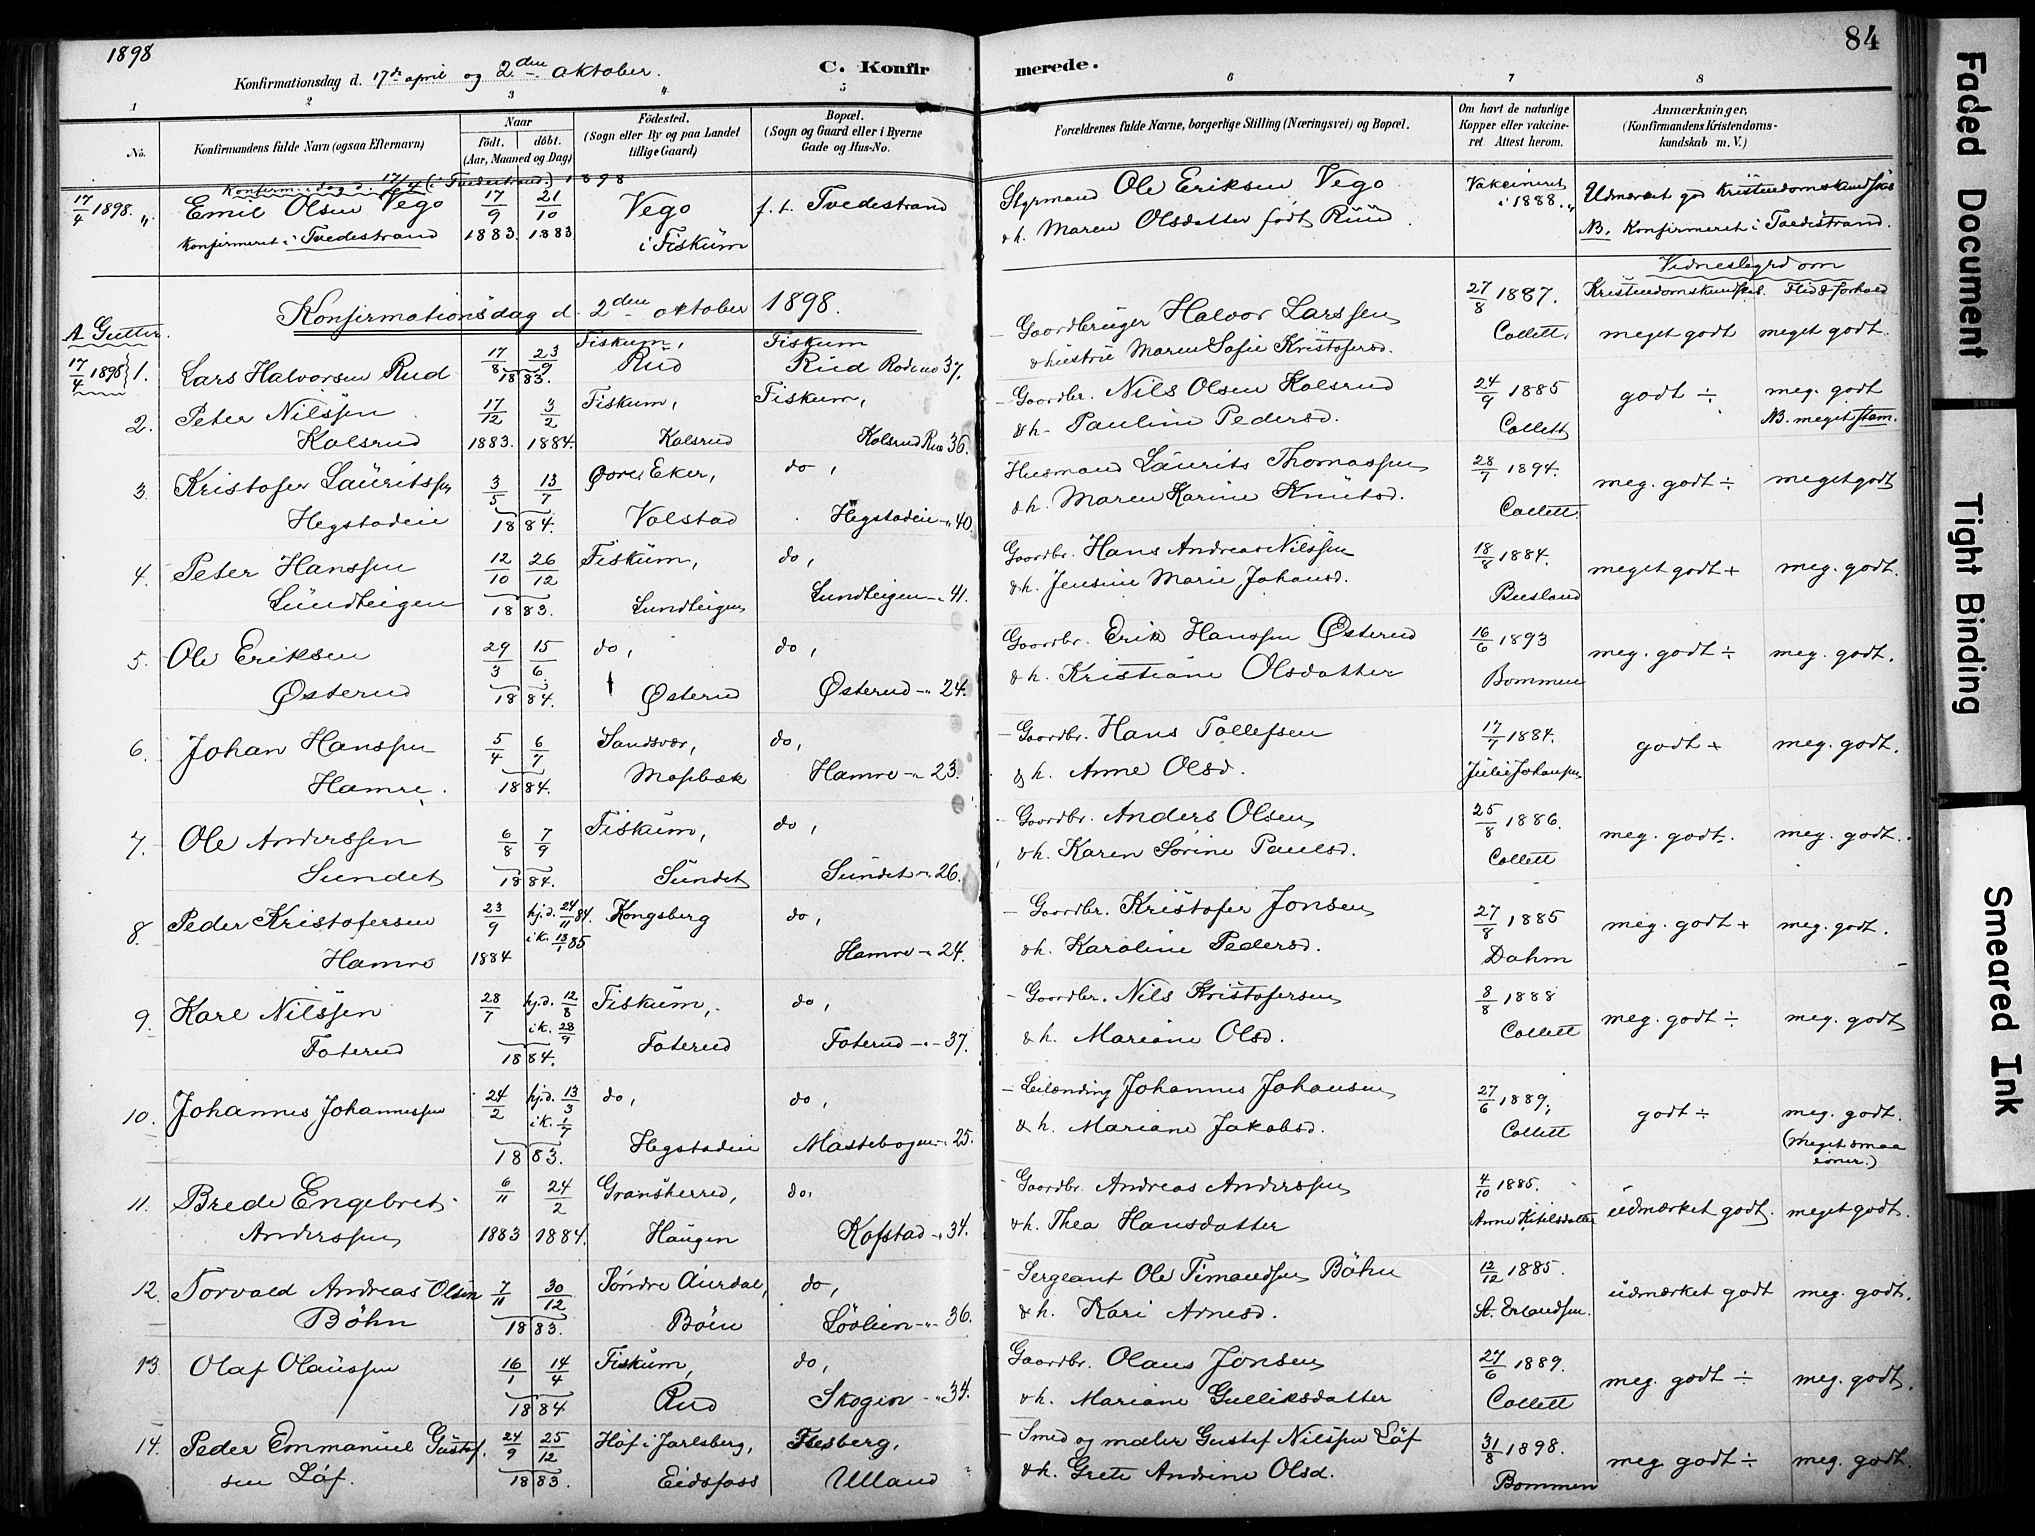 1898
84
Konfirmationsdag d. 17de april og 2den oktober.
C. Konfirmerede.
1 2 3 4 5 6 7 8
No.
Konfirmandens fulde Navn (ogsaa Efternavn)
Naar
født. døbt.
(Aar, Maaned og Dag)
Fødested.
(Sogn eller By og paa Landet
tillige Gaard)
Bopæl.
(Sogn og Gaard eller i Byerne
Gade og Hus-No.
Forældrenes fulde Navne, borgerlige Stilling (Næringsvei) og Bopæl.
Om havt de naturlige
Kopper eller vakcine-
ret Attest herom.
Anmærkninger,
(Konfirmandens Kristendoms-
kundskab m. V.)
Konfirm.dag d. 17/4 (i Tvedestrand.) 1898
17/4 1898. " Emil Olsen Vego 17/9 1883. 21/10 1883 Vego i Fiskum f. t. Tvedestrand
Konfirmeret i Tvedestrand
Styrmand Ole Eriksen Vego
& h. Maren Olsdatter født Ruud.
Vakcineret i 1888. "
Udmærket god Kristendomskundskab
NB. Konfirmeret i Tvedestrand.
Konfirmationsdag d. 2den oktober 1898.
Vidnesbyrd om
Kristendomskundskab. Flid & forhold
A Gutter.
17/4 1898 } 1. Lars Halvorsen Rud 17/8 23/9 1883. Fiskum, Rud Fiskum Rud Rode no 37.
Gaardbruger Halvor Larssen
& hustru Maren Sofie Kristofersd.
27/8 1887. Collett. meget godt meget godt.
2. Peter Nilssen Kolsrud 17/12 1883. 3/2 1884. Fiskum, Kolsrud Fiskum, Kolsrud 36.
Gaardbr. Nils Olsen Kolsrud
& h. Pauline Pedersd.
24/9 1885 Collett godt ÷ meg. godt
NB. meget stam.
3. Kristofer Lauritssen Hegstadeie 3/5 13/7 1884. Øvre Eker, Volstad do, Hegstadeie " 40.
Husmand Laurits Thomassen
& h. Maren Karine Knutsd.
28/7 1894. Collett. meg. godt ÷ meget godt
4. Peter Hanssen Lundteigen 12/10 26/12 1883. Fiskum, Lundteigen do, Lundteigen " 41.
Gaardbr. Hans Andreas Nilssen
& h. Jensine Marie Johansd.
18/8 1884. meget godt + meg. godt.
5. Ole Eriksen Østerud 29/3 15/6 1884. do, Østerud do, Østerud " 24.
Gaardbr. Erik Hanssen Østerud
& h. Kristiane Olsdatter
16/6 1893 Bommen meg. godt ÷ meg. godt.
6. Johan Hanssen Hamre. 5/4 6/7 1884. Sandsvær, Mosbæk do, Hamre " 23.
Gaardbr. Hans Tollefsen
& h. Anne Olsd.
17/7 1884. Julie Johansen godt + meg. godt.
7. Ole Anderssen Sundet 6/8 7/9 1884. Fiskum, Sundet do, Sundet " 26.
Gaardbr. Anders Olsen
& h. Karen Sørine Paulsd.
25/8 1886. Collett meg. godt. meg. godt.
8. Peder Kristofersen Hamre 23/9 1884 hj.d. 24/11 84. i k. 18/1 85 Kongsberg do, Hamre " 24.
Gaardbr. Kristofer Jonsen
& h. Karoline Pedersd.
27/8 1885 Dahm meg. godt + meg. godt.
9. Karl Nilssen Foterud 28/7 hj.d. 12/8 i k. 28/9 1884. Fiskum, Foterud do, Foterud " 37.
Gaardbr. Nils Kristofersen
& h. Mariane Olsd.
8/8 1888 Collett meg. godt ÷ meg. godt
10. Johannes Johannessen 24/2 hj.d. 13/3 i k. 1/7 1883. do, Hegstadeie do, Mastebogen " 25.
Leilænding Johannes Johansen
& h. Mariane Jakobsd.
27/6 1889. Collett godt ÷ meg. godt.
(meget smaa evner.)
11. Brede Engebret Anderssen 6/11 1883 24/2 1884. Gransherred, Haugen do. Kofstad " 34.
Gaardbr. Andreas Anderssen
& h. Thea Hansdatter
4/10 1885. Anne Kitilsdatter udmærket godt. meget godt.
12. Torvald Andreas Olsen Böhn 7/11 30/12 1883. Söndre Aurdal, Böen do, Lövlien " 36.
Sergeant Ole Timandsen Böhn
& h. Kari Arnesd.
12/12 1885. St. Erlandsen. udmærket godt meg. godt.
13 Olaf Olaussen 16/1 14/4 1884 Fiskum, Rud do, Skogen " 34.
Gaardbr. Olaus Jonsen
& h. Mariane Gulliksdatter
27/6 1889. Collett meg. godt ÷ meg. godt.
14. Peder Emmanuel Gustafsen Löf. 24/9 25/12 1883. Hof i Jarlsberg, Eidsfoss Flesberg, Ulland
Smed og maler Gustaf Nilssen Löf
& h. Grete Andrine Olsd.
31/8 1898. Bommen meg godt ÷ meg. godt.
Faded Document
Tight Binding
Smeared Ink